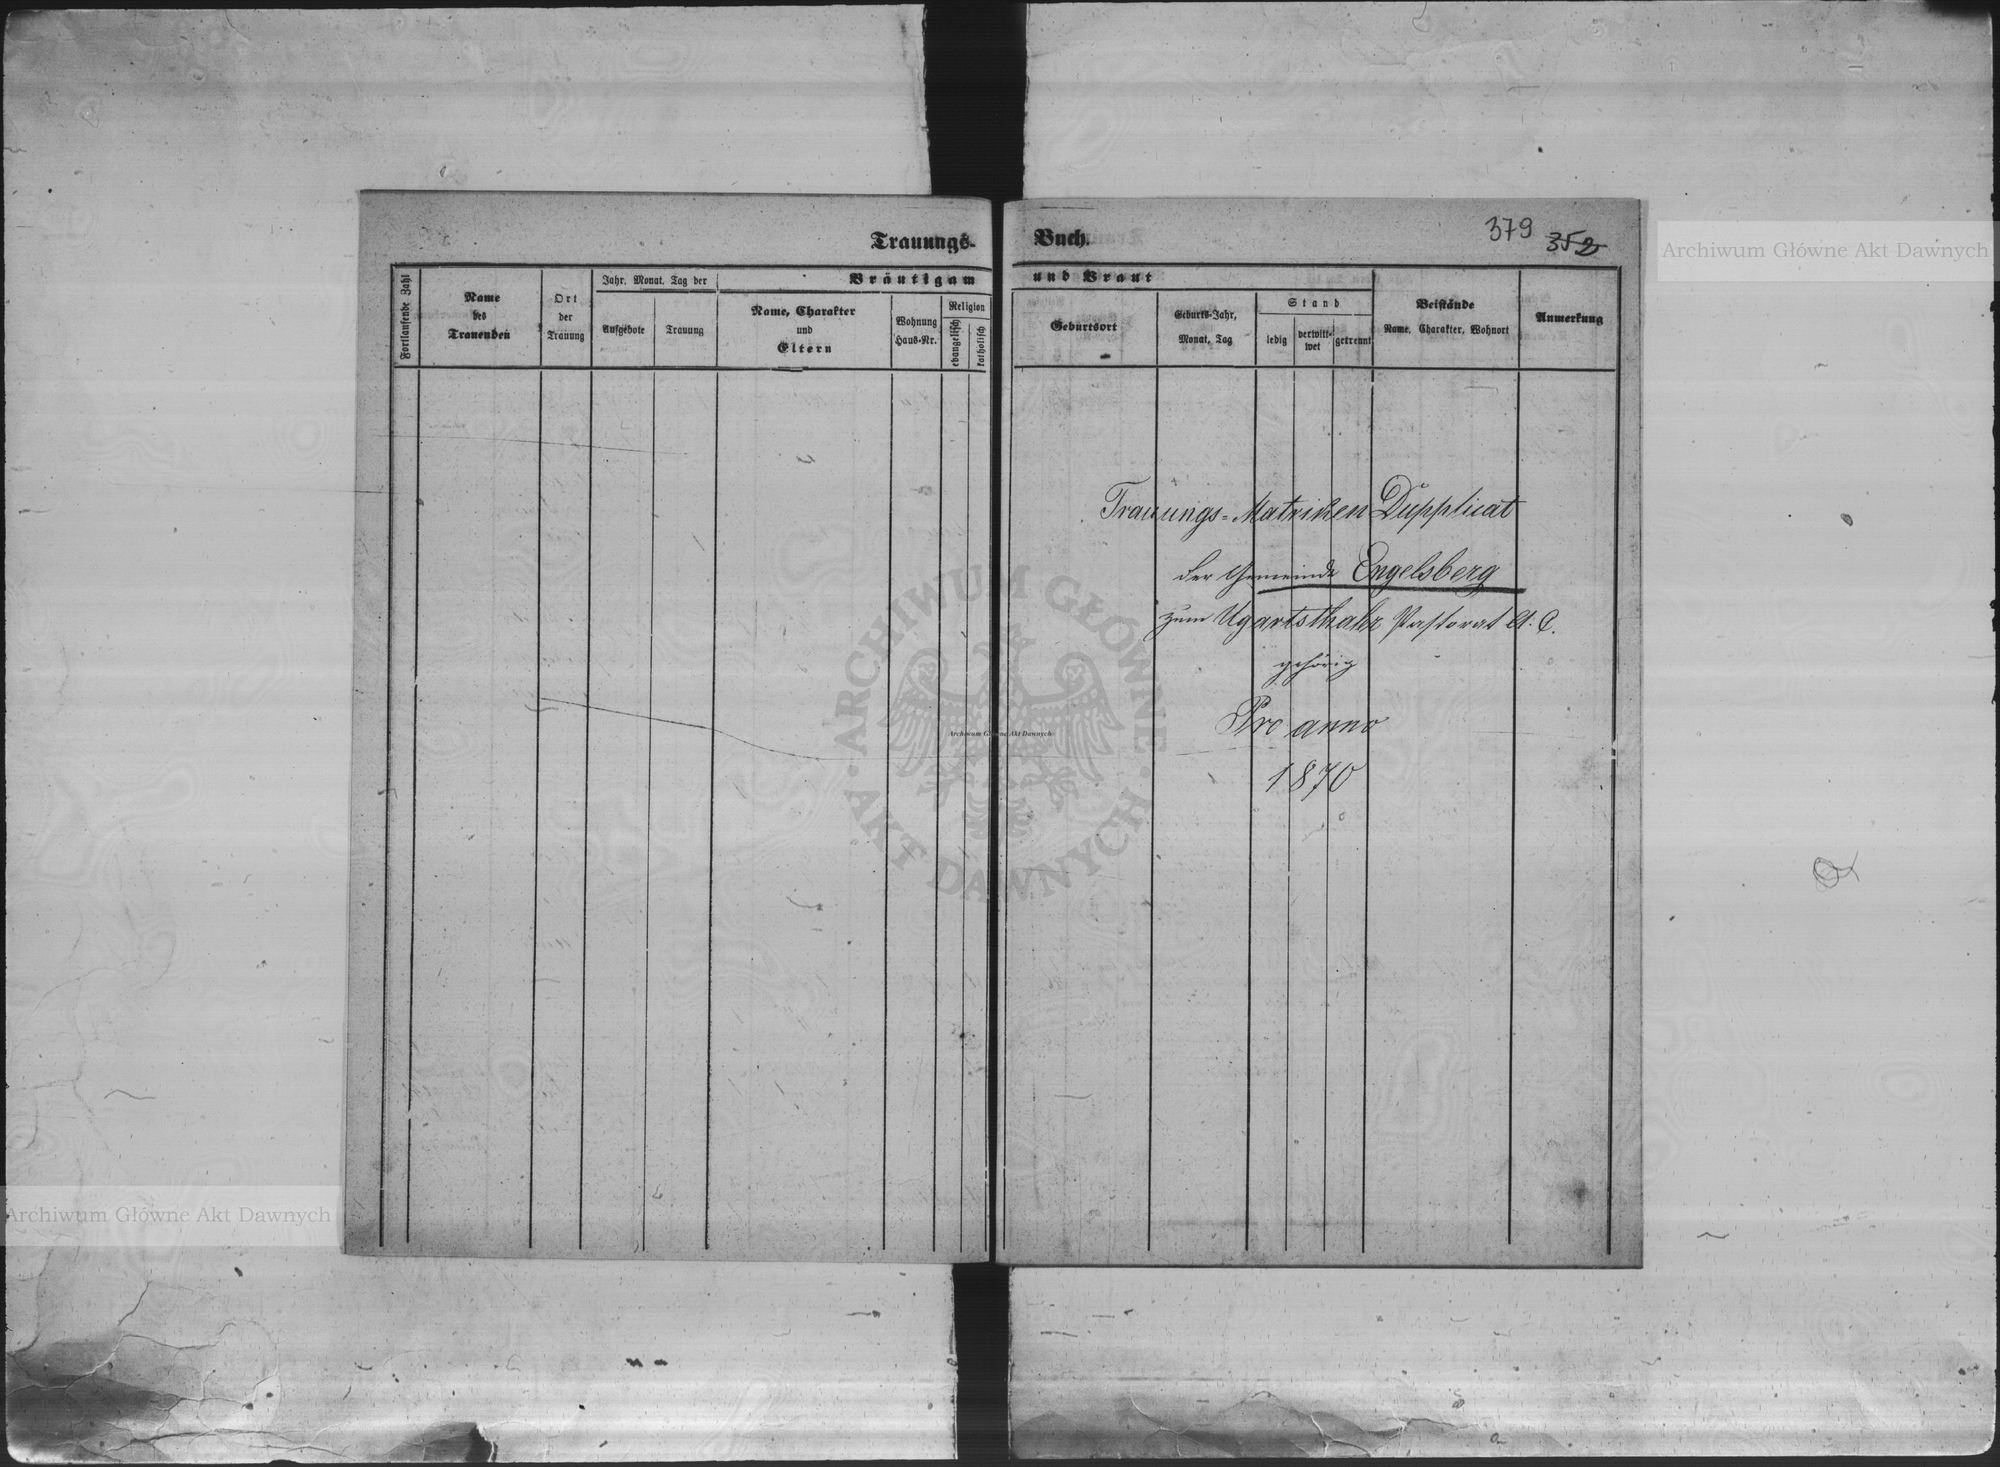 Trauungs-
Fortlaufende Zahl
Name
des
Trauenden
Ort
der
Trauung
Jahr. Monat. Tag der
Aufgebote
Trauung
Bräutigam
Name, Charakter
und
Eltern
Wohnung
Haus-Nr.
Religion
evangelisch
katholisch
Buch.
379 352
und Braut
Geburtsort
Geburts-Jahr,
Monat, Tag
Stand
ledig
verwitt-
wet
getrennt
Beistände
Name, Charakter, Wohnort
Anmerkung
Trauungs-Matriken Dupplicat
der Gemeinde Engelsberg
zum Ugartsthaler Pastorat A. C.
gehörig
Pro anno
1870
Archiwum Główne Akt Dawnych
Archiwum Główne Akt Dawnych
Archiwum Główne Akt Dawnych
ARCHIWUM GŁÓWNE
AKT DAWNYCH